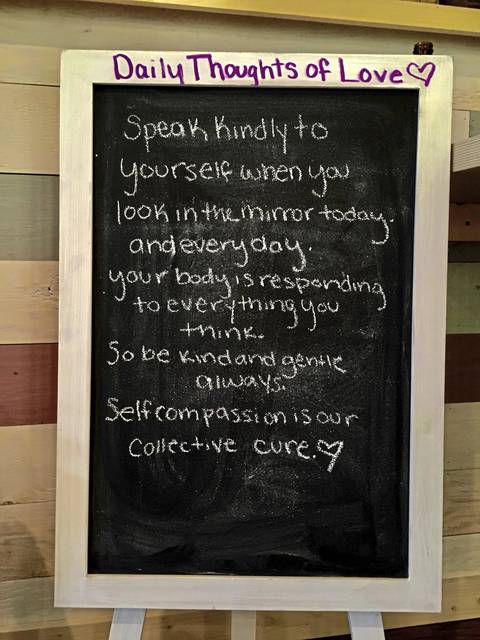 Daily Thoughts of Love♡
Speak Kindly to
yourself when you
look in the mirror today.
and every day.
your body is responding
to everything you
think.
So be kind and gentle
always.
Self compassion is our
collective cure.♡